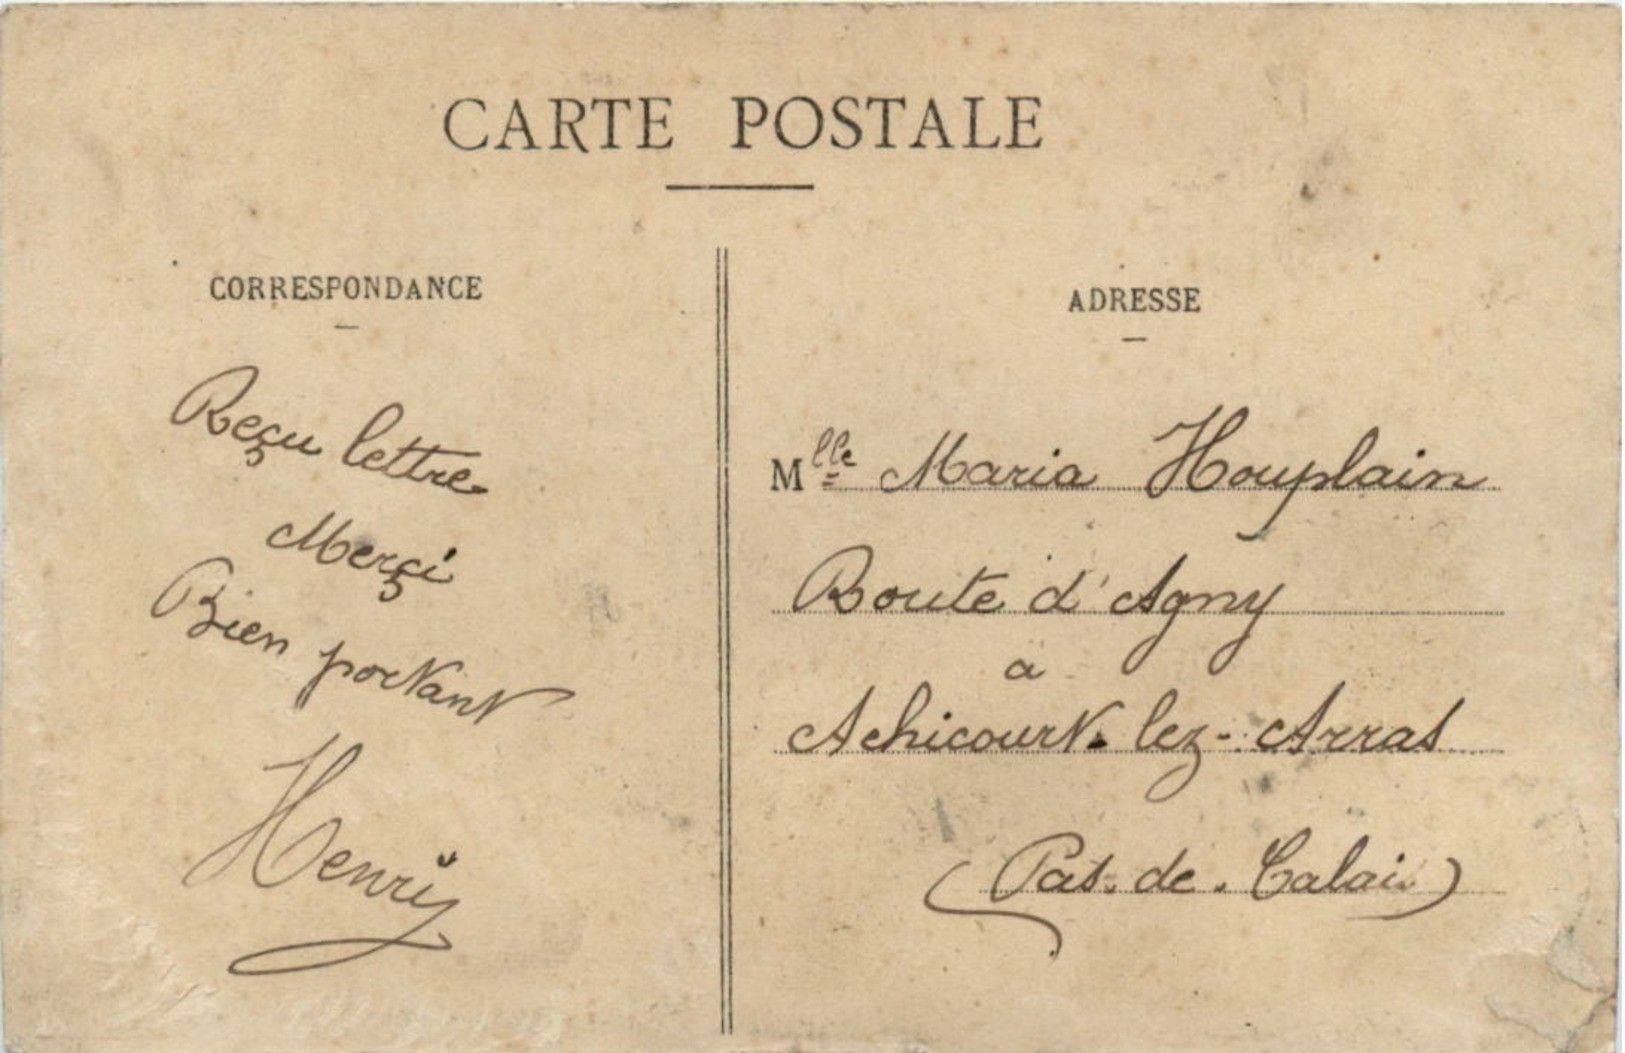 CARTE POSTALE
CORRESPONDANCE
Reçu lettre
Merçi
Bien portant
Henry
ADRESSE
Mlle Maria Houplain
Route d'Agny
a
Achicourt-lez-Arras
(Pas-de-Calais)